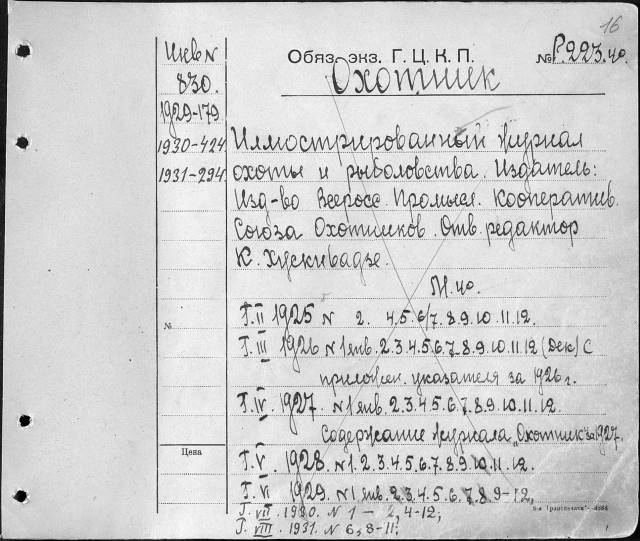 16
Инв N
830.
1929-179
1930-424
1931-294
Обяз. экз. Г. Ц. К. П. № Р.223.ю.
Охотник
Иллюстрированный журнал
охоты и рыболовства. Издатель:
Изд-во Всеросс. Промысл. Кооператив.
Союза Охотников. Отв. редактор
К. Хускивадзе.
М.ю.
№
Т. II 1925 N 2. 4.5.6/7.8.9.10.11.12.
Т. III 1926 N 1 янв. 2.3.4.5.6.7.8.9.10.11.12 (Дек) С
приложен. указателя за 1926 г.
Т. IV. 1927. N 1 янв. 2.3.4.5.6.7.8.9.10.11.12.
Содержание журнала „Охотник" за 1927.
Цена
Т. V. 1928. N 1.2.3.4.5.6.7.8.9.10.11.12.
Т. VI 1929. N 1 янв. 2.3.4.5.6.7.8.9-12,
Т. VII. 1930. N 1 - 2, 4-12;
Т. VIII. 1931. N 6, 8-11;